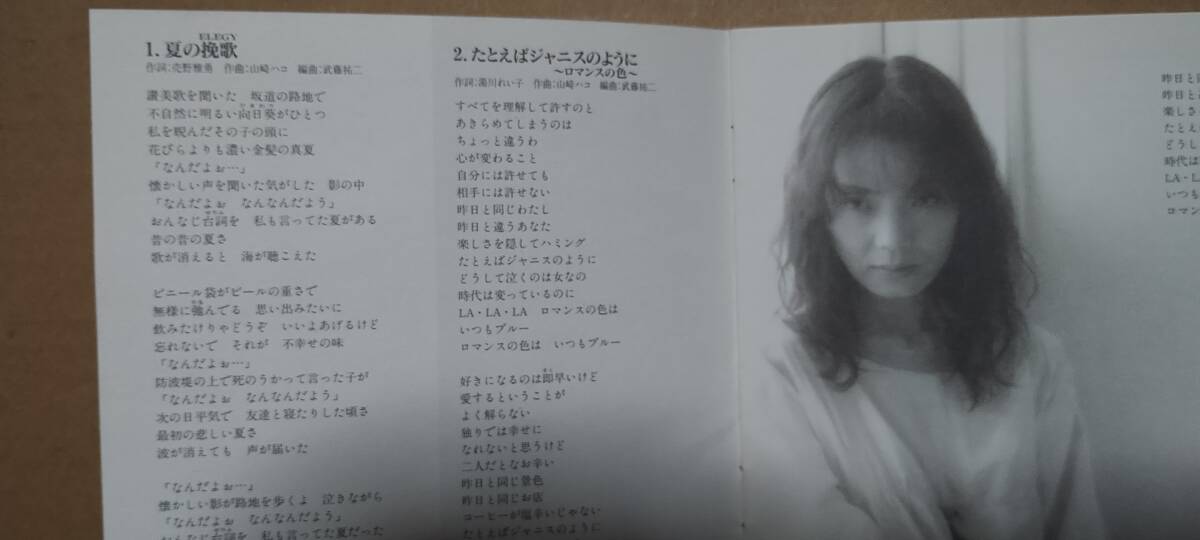 ELEGY
1. 夏の挽歌
作詞:売野雅勇 作曲:山崎ハコ 編曲:武藤祐二
讃美歌を聞いた 坂道の路地で
不自然に明るい向日葵がひとつ
私を睨んだその子の頭に
花びらよりも濃い金髪の真夏
「なんだよぉ…」
懐かしい声を聞いた気がした 影の中
「なんだよぉ なんなんだよう」
おんなじ台詞を 私も言ってた夏がある
昔の昔の夏さ
歌が消えると 海が聴こえた
ビニール袋がビールの重さで
無様に弛んでる 思い出みたいに
飲みたけりゃどうぞ いいよあげるけど
忘れないで それが 不幸せの味
「なんだよぉ…」
防波堤の上で死のうかって言った子が
「なんだよぉ なんなんだよう」
次の日平気で 友達と寝たりした頃さ
最初の悲しい夏さ
波が消えても 声が届いた
「なんだよぉ…」
懐かしい影が路地を歩くよ 泣きながら
「なんだよぉ なんなんだよう」
おんなじ台詞を 私も言ってた夏だった
2. たとえばジャニスのように
〜ロマンスの色〜
作詞:湯川れい子 作曲:山崎ハコ 編曲:武藤祐二
すべてを理解して許すのと
あきらめてしまうのは
ちょっと違うわ
心が変わること
自分には許せても
相手には許せない
昨日と同じわたし
昨日と違うあなた
楽しさを隠してハミング
たとえばジャニスのように
どうして泣くのは女なの
時代は変っているのに
LA・LA・LA ロマンスの色は
いつもブルー
ロマンスの色は いつもブルー
好きになるのは即早いけど
愛するということが
よく解らない
独りでは幸せに
なれないと思うけど
二人だとなお辛い
昨日と同じ景色
昨日と同じお店
コーヒーが塩辛いじゃない
たとえばジャニスのように
昨日と同
昨日と
楽し
たとえ
どうし
時代は
LA・L
いつも
ロマ